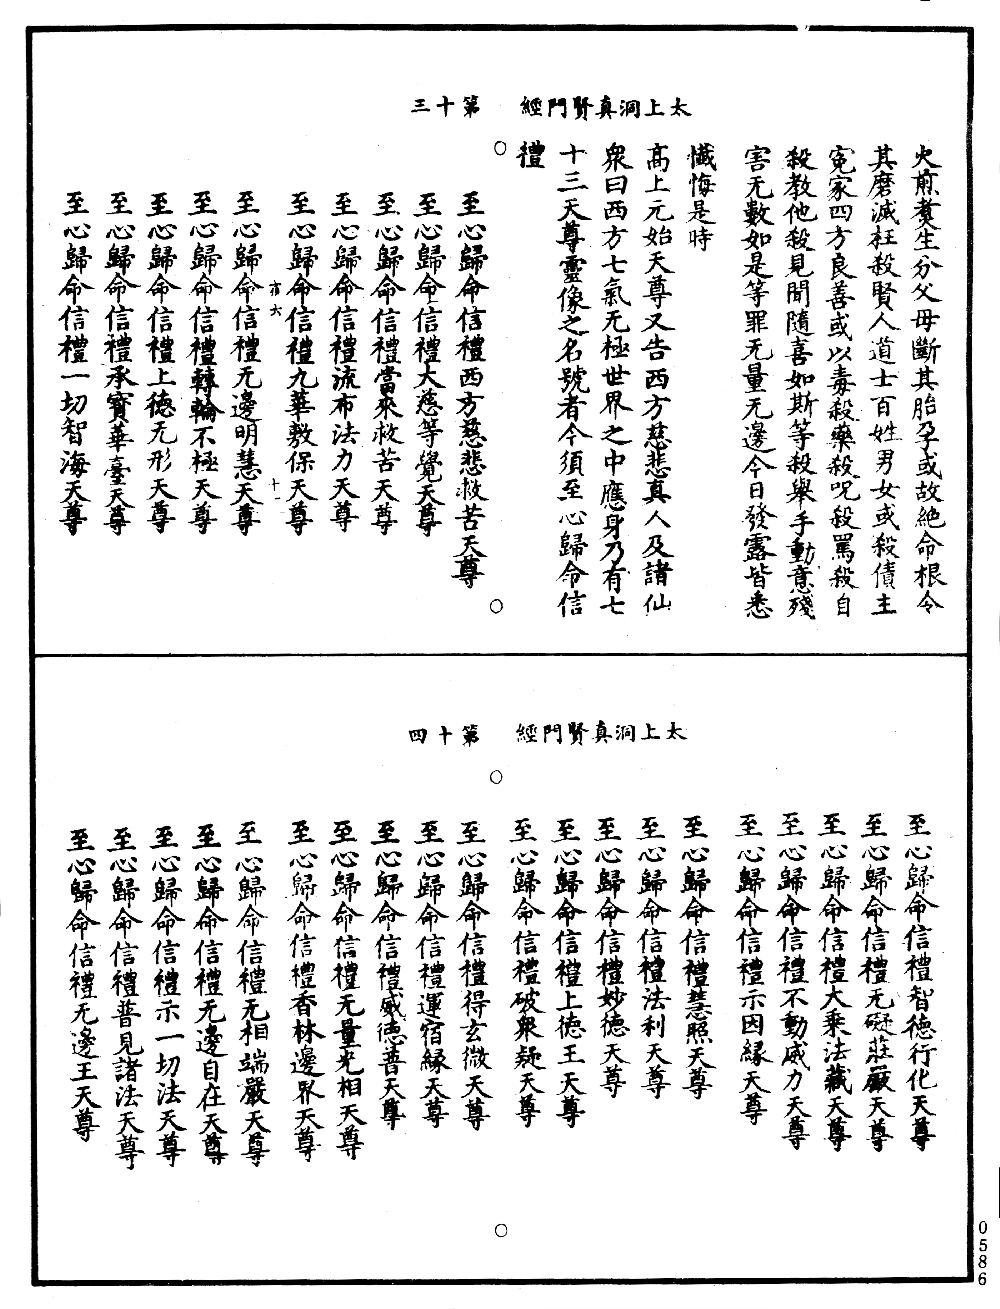 太上洞真賢門經　第十三
火煎煑生分父母斷其胎孕或故絶命根令
其磨滅枉殺賢人道士百姓男女或殺債主
冤家四方良善或以毒殺藥殺呪殺罵殺自
殺教他殺見聞隨喜如斯等殺舉手動意殘
害无數如是等罪无量无邊今日發露皆悉
懺悔是時
高上元始天尊又告西方慈悲真人及諸仙
衆曰西方七氣无極世界之中應身乃有七
十三天尊靈像之名號者今須至心歸命信
禮
至心歸命信禮西方慈悲救苦天尊
至心歸命信禮大慈等覺天尊
至心歸命信禮當來救苦天尊
至心歸命信禮流布法力天尊
至心歸命信禮九華敷保天尊
六　十一
至心歸命信禮无邊明慧天尊
至心歸命信禮轉輪不極天尊
至心歸命信禮上德无形天尊
至心歸命信禮承寶華臺天尊
至心歸命信禮一切智海天尊
太上洞真賢門經　第十四
至心歸命信禮智德行化天尊
至心歸命信禮无礙莊嚴天尊
至心歸命信禮大乘法藏天尊
至心歸命信禮不動威力天尊
至心歸命信禮示因緣天尊
至心歸命信禮慧照天尊
至心歸命信禮法利天尊
至心歸命信禮妙德天尊
至心歸命信禮上德王天尊
至心歸命信禮破衆疑天尊
至心歸命信禮得玄微天尊
至心歸命信禮運宿緣天尊
至心歸命信禮威德善天尊
至心歸命信禮无量光相天尊
至心歸命信禮香林邊界天尊
至心歸命信禮无相端嚴天尊
至心歸命信禮无邊自在天尊
至心歸命信禮示一切法天尊
至心歸命信禮普見諸法天尊
至心歸命信禮无邊王天尊
0586